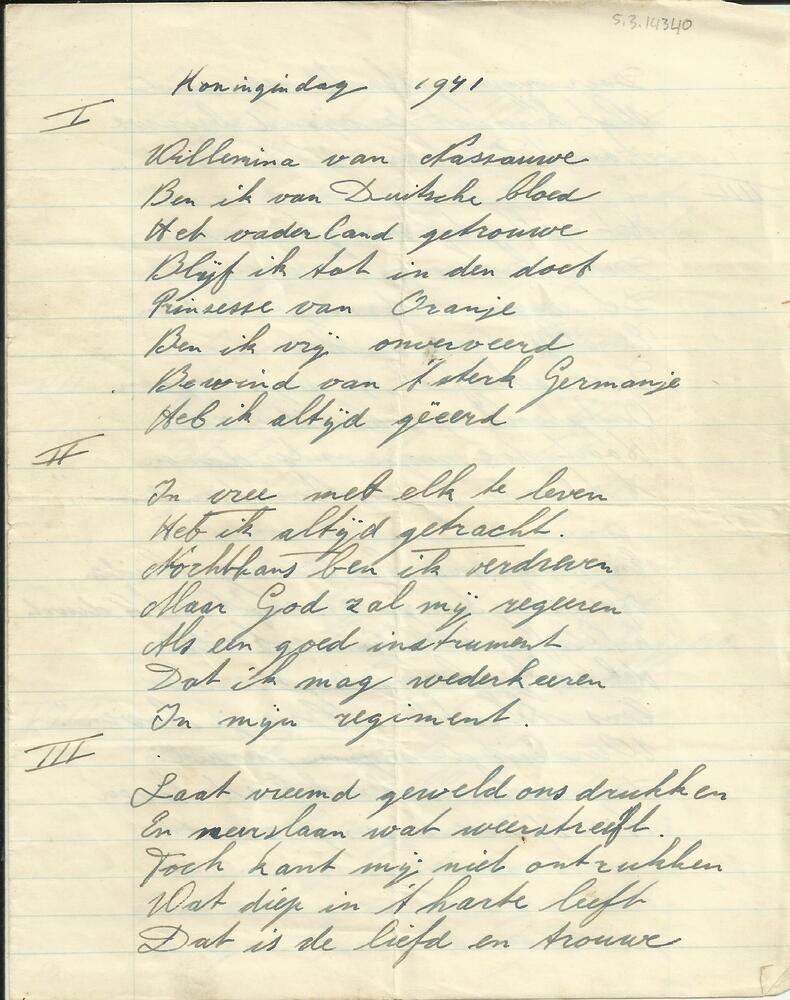 5.3.14340
Koningindag 1941
I
Willemina van Nassauwe
Ben ik van Duitsche bloed
Het vaderland getrouwe
Blijf ik tot in den doet
Prinsesse van Oranje
Ben ik vrij onverveerd
Bewind van 't sterk Germanje
Heb ik altijd gëeerd
II
In vree met elk te leven
Heb ik altijd getracht.
Nochthans ben ik verdreven
Maar God zal mij regeeren
Als een goed instrument
Dat ik mag wederkeeren
In mijn regiment.
III
Laat vreemd geweld ons drukken
En neerslaan wat weerstreeft.
Toch kant mij niet ontrukken
Wat diep in 't harte leeft
Dat is de liefd en trouwe